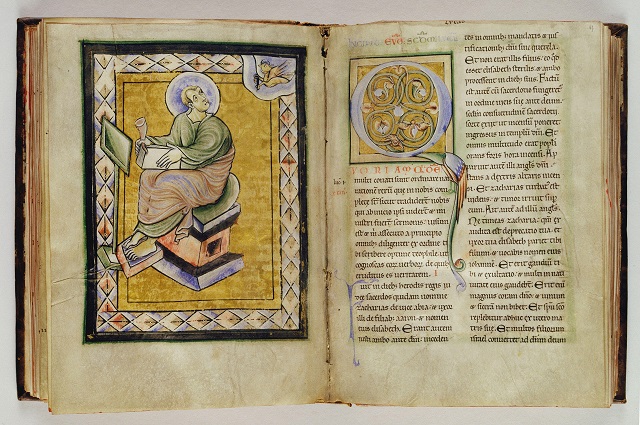 multi conati sunt ordinare nar
rationē rerū que in nobis com
plete sī sicut tradiderunt nobis
qui ab inicio ipsi uiderī & mi
nistri fuerī sermonis: uisum
est & m assecuto a principio
omnibus diligenter ex ordine ti
bi scribere optime theophile ut
cognoscas eorum uerborū de quib
eruditus es ueritatem.
uit in dieb; herodis regis iu
dee sacerdos quidam nomine
zacharias de uice abia & uxor
illi de filiab; aaron & nomen
eius elisabeth. Erant autem
iusti ambo ante dm inceden
tes in omnib; mandatis & ius
tificationib; dni sine querela.
Et non erat illis filius eo qd
esset elisabeth sterilis & ambo
processissent in dieb; suis. Factū
est autē cū sacerdotio fungeret
in ordine uicis sue ante deum.
sedm consuetudinē sacerdotii
sorte exiit ut incensū poneret
ingressus in templū dni. Et
omnis multitudo erat populi
orans foris hora incensi. Ap
paruit autē illi angls dni
stans a dextris altaris incen
si. Et zacharias turbat est
uidens. & timor irruit sup
eum. Ait autē ad illū angls.
Ne timeas zacharia. qm ex
audita est deprecatio tua. &
uxor tua elisabeth pariet tibi
filium & uocabis nomen eius
iohannem. Et erit gaudiū ti
bi & exultatio. & multi in nati
uitate eius gaudebt. Erit eni
magnus coram dno & uinum
& sicerā non bibet. Et spū sco
replebitur adhuc ex utero ma
tris sue. Et multos filiorum
israel conuertet ad dnm deum